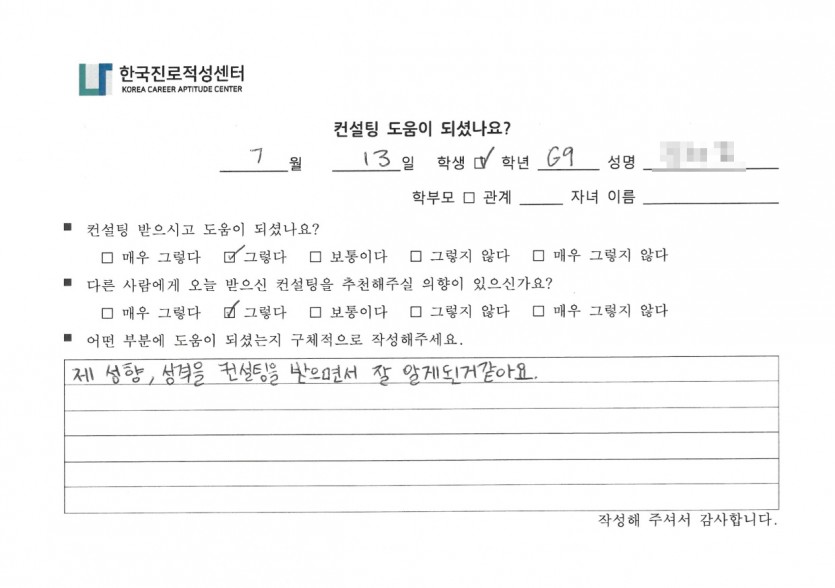 한국진로적성센터
KOREA CAREER APTITUDE CENTER
컨설팅 도움이 되셨나요?
7 월 13 일 학생 ☑ 학년 G9 성명
학부모 □ 관계 자녀 이름
■ 컨설팅 받으시고 도움이 되셨나요?
□ 매우 그렇다 ☑ 그렇다 □ 보통이다 □ 그렇지 않다 □ 매우 그렇지 않다
■ 다른 사람에게 오늘 받으신 컨설팅을 추천해주실 의향이 있으신가요?
□ 매우 그렇다 ☑ 그렇다 □ 보통이다 □ 그렇지 않다 □ 매우 그렇지 않다
■ 어떤 부분에 도움이 되셨는지 구체적으로 작성해주세요.
제 성향, 성격을 컨설팅을 받으면서 잘 알게된거같아요.
작성해 주셔서 감사합니다.